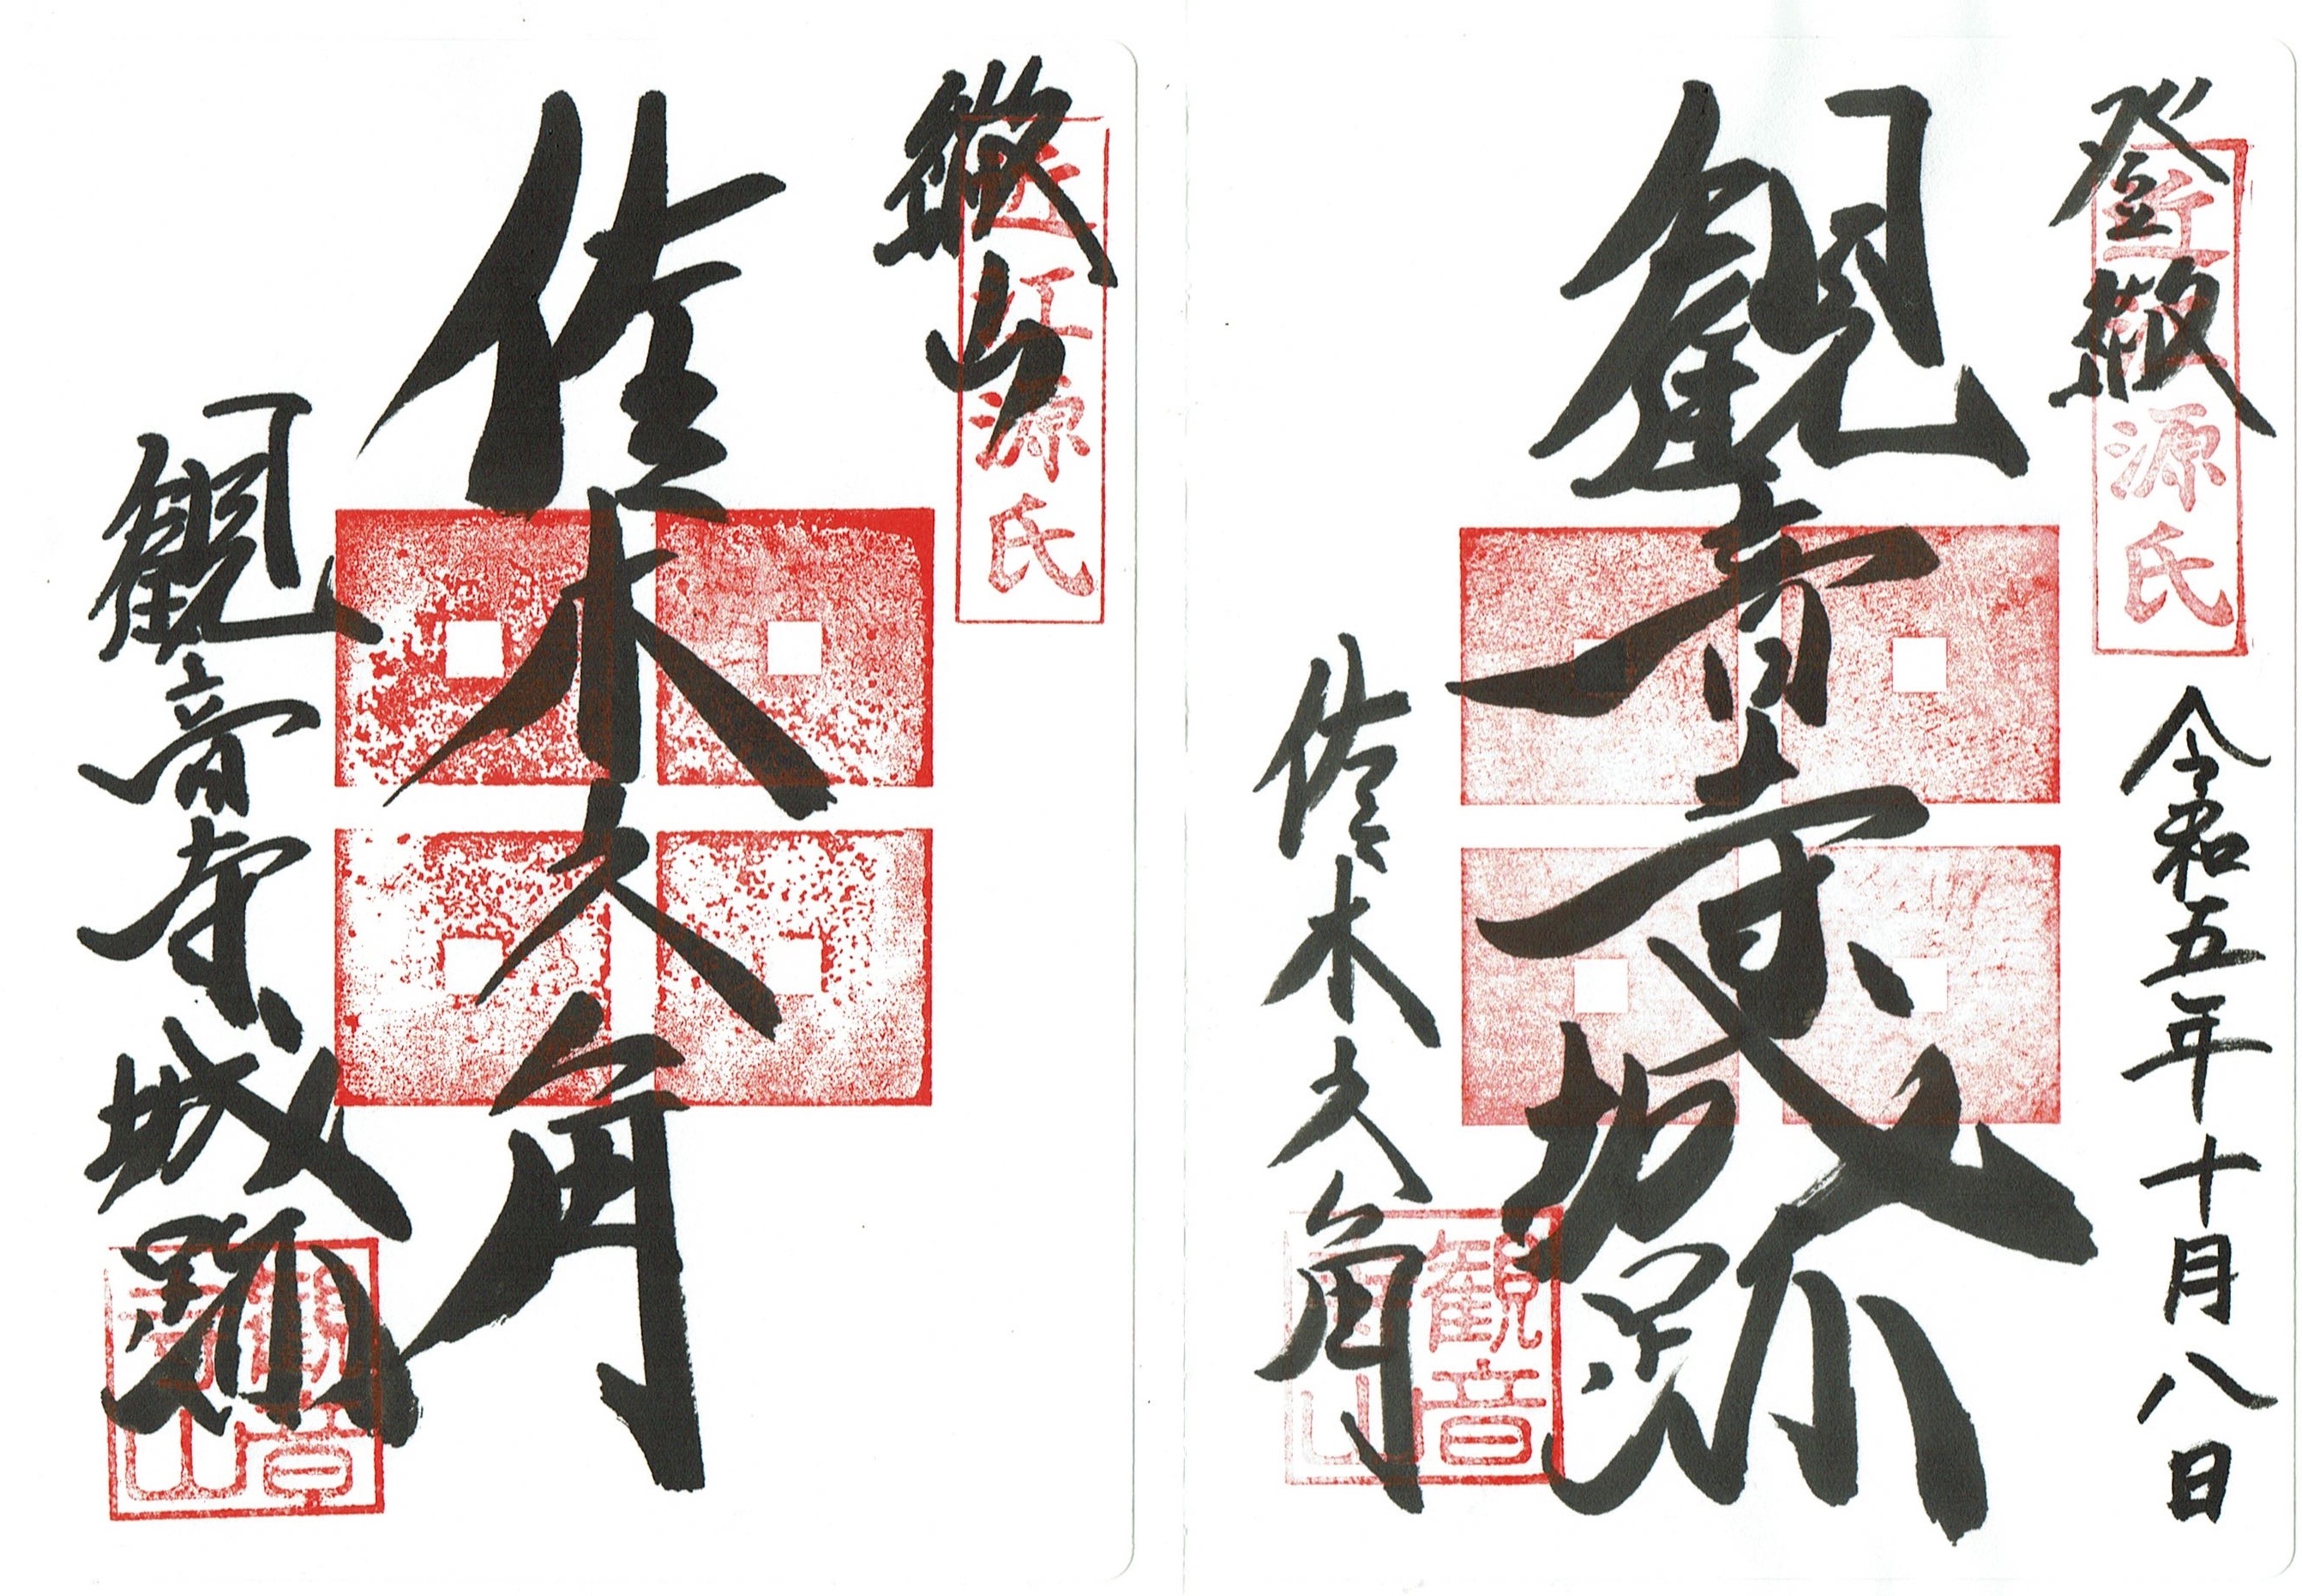 登
近江源氏
令和五年十月八日
観音寺城跡
佐々木六角
観音
寺山
繖山
近江源氏
佐々木六角
観音寺城
観音
寺山